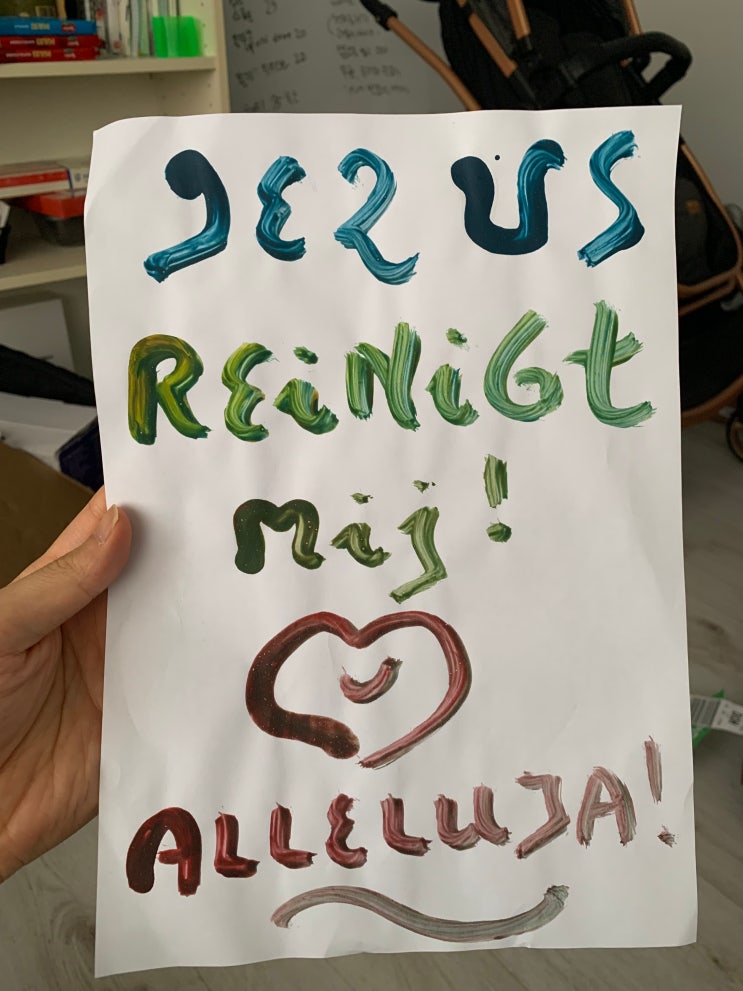 JEZUS
REiNiGt
mij!
ALLELUJA!